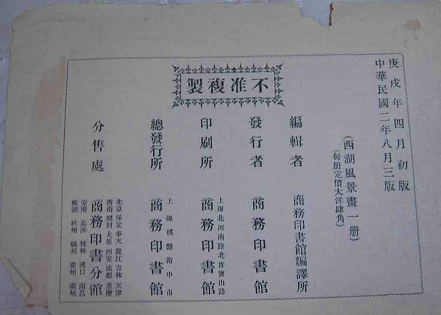 庚戌年四月初版
中華民國二年八月三版
(西湖風景畫一册)
(每册定價大洋肆角)
不准複製
編輯者 商務印書館編譯所
發行者 商務印書館
印刷所 上海北河南路北首寶山路 商務印書館
總發行所 上海棋盤街中市 商務印書館
分售處 商務印書分館
北京 保定 奉天 龍江 吉林 天津
濟南 開封 太原 西安 成都 重慶